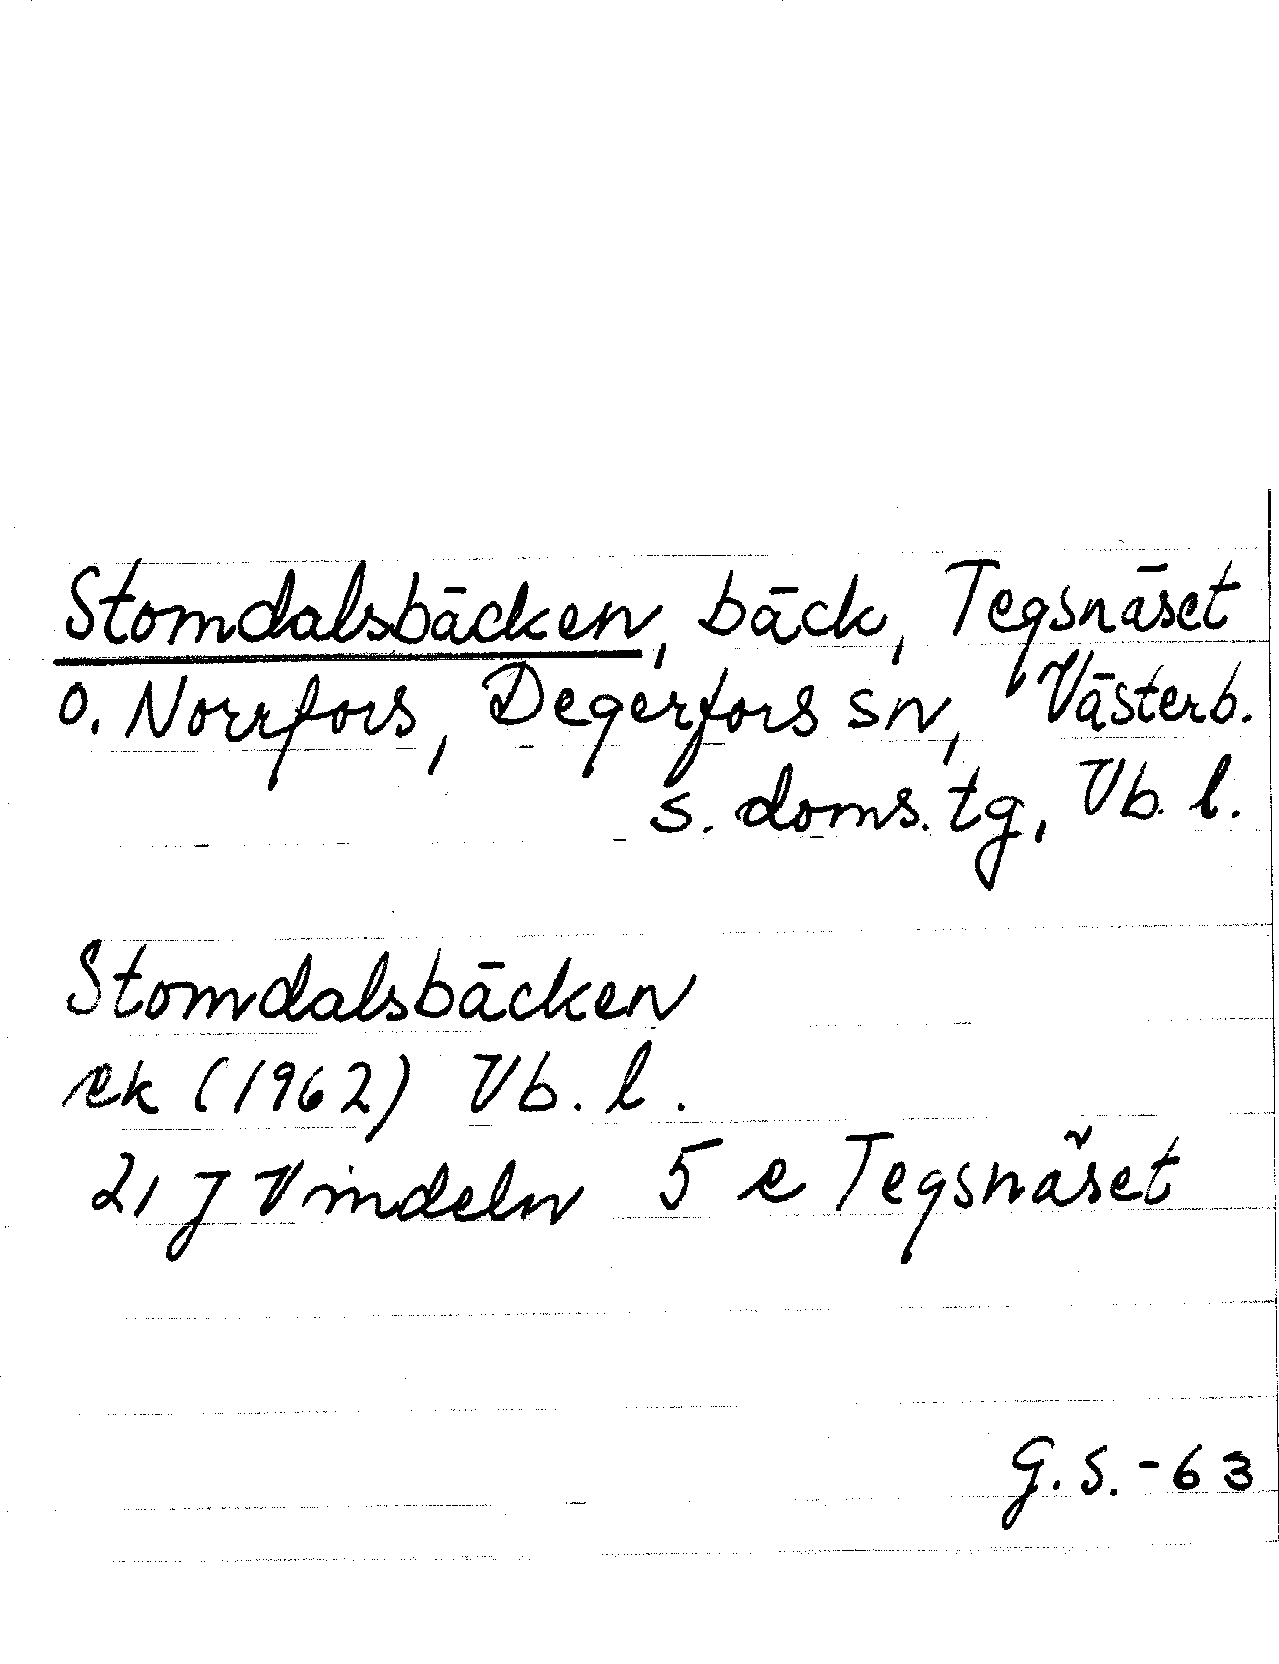 Stomdalsbäcken, bäck, Tegsnäset
o. Norrfors, Degerfors sn, Västerb.
s. doms. tg, Vb. l.
Stomdalsbäcken
ek (1962) Vb. l.
21 J Vindeln 5 e Tegsnäset
G.S.-63